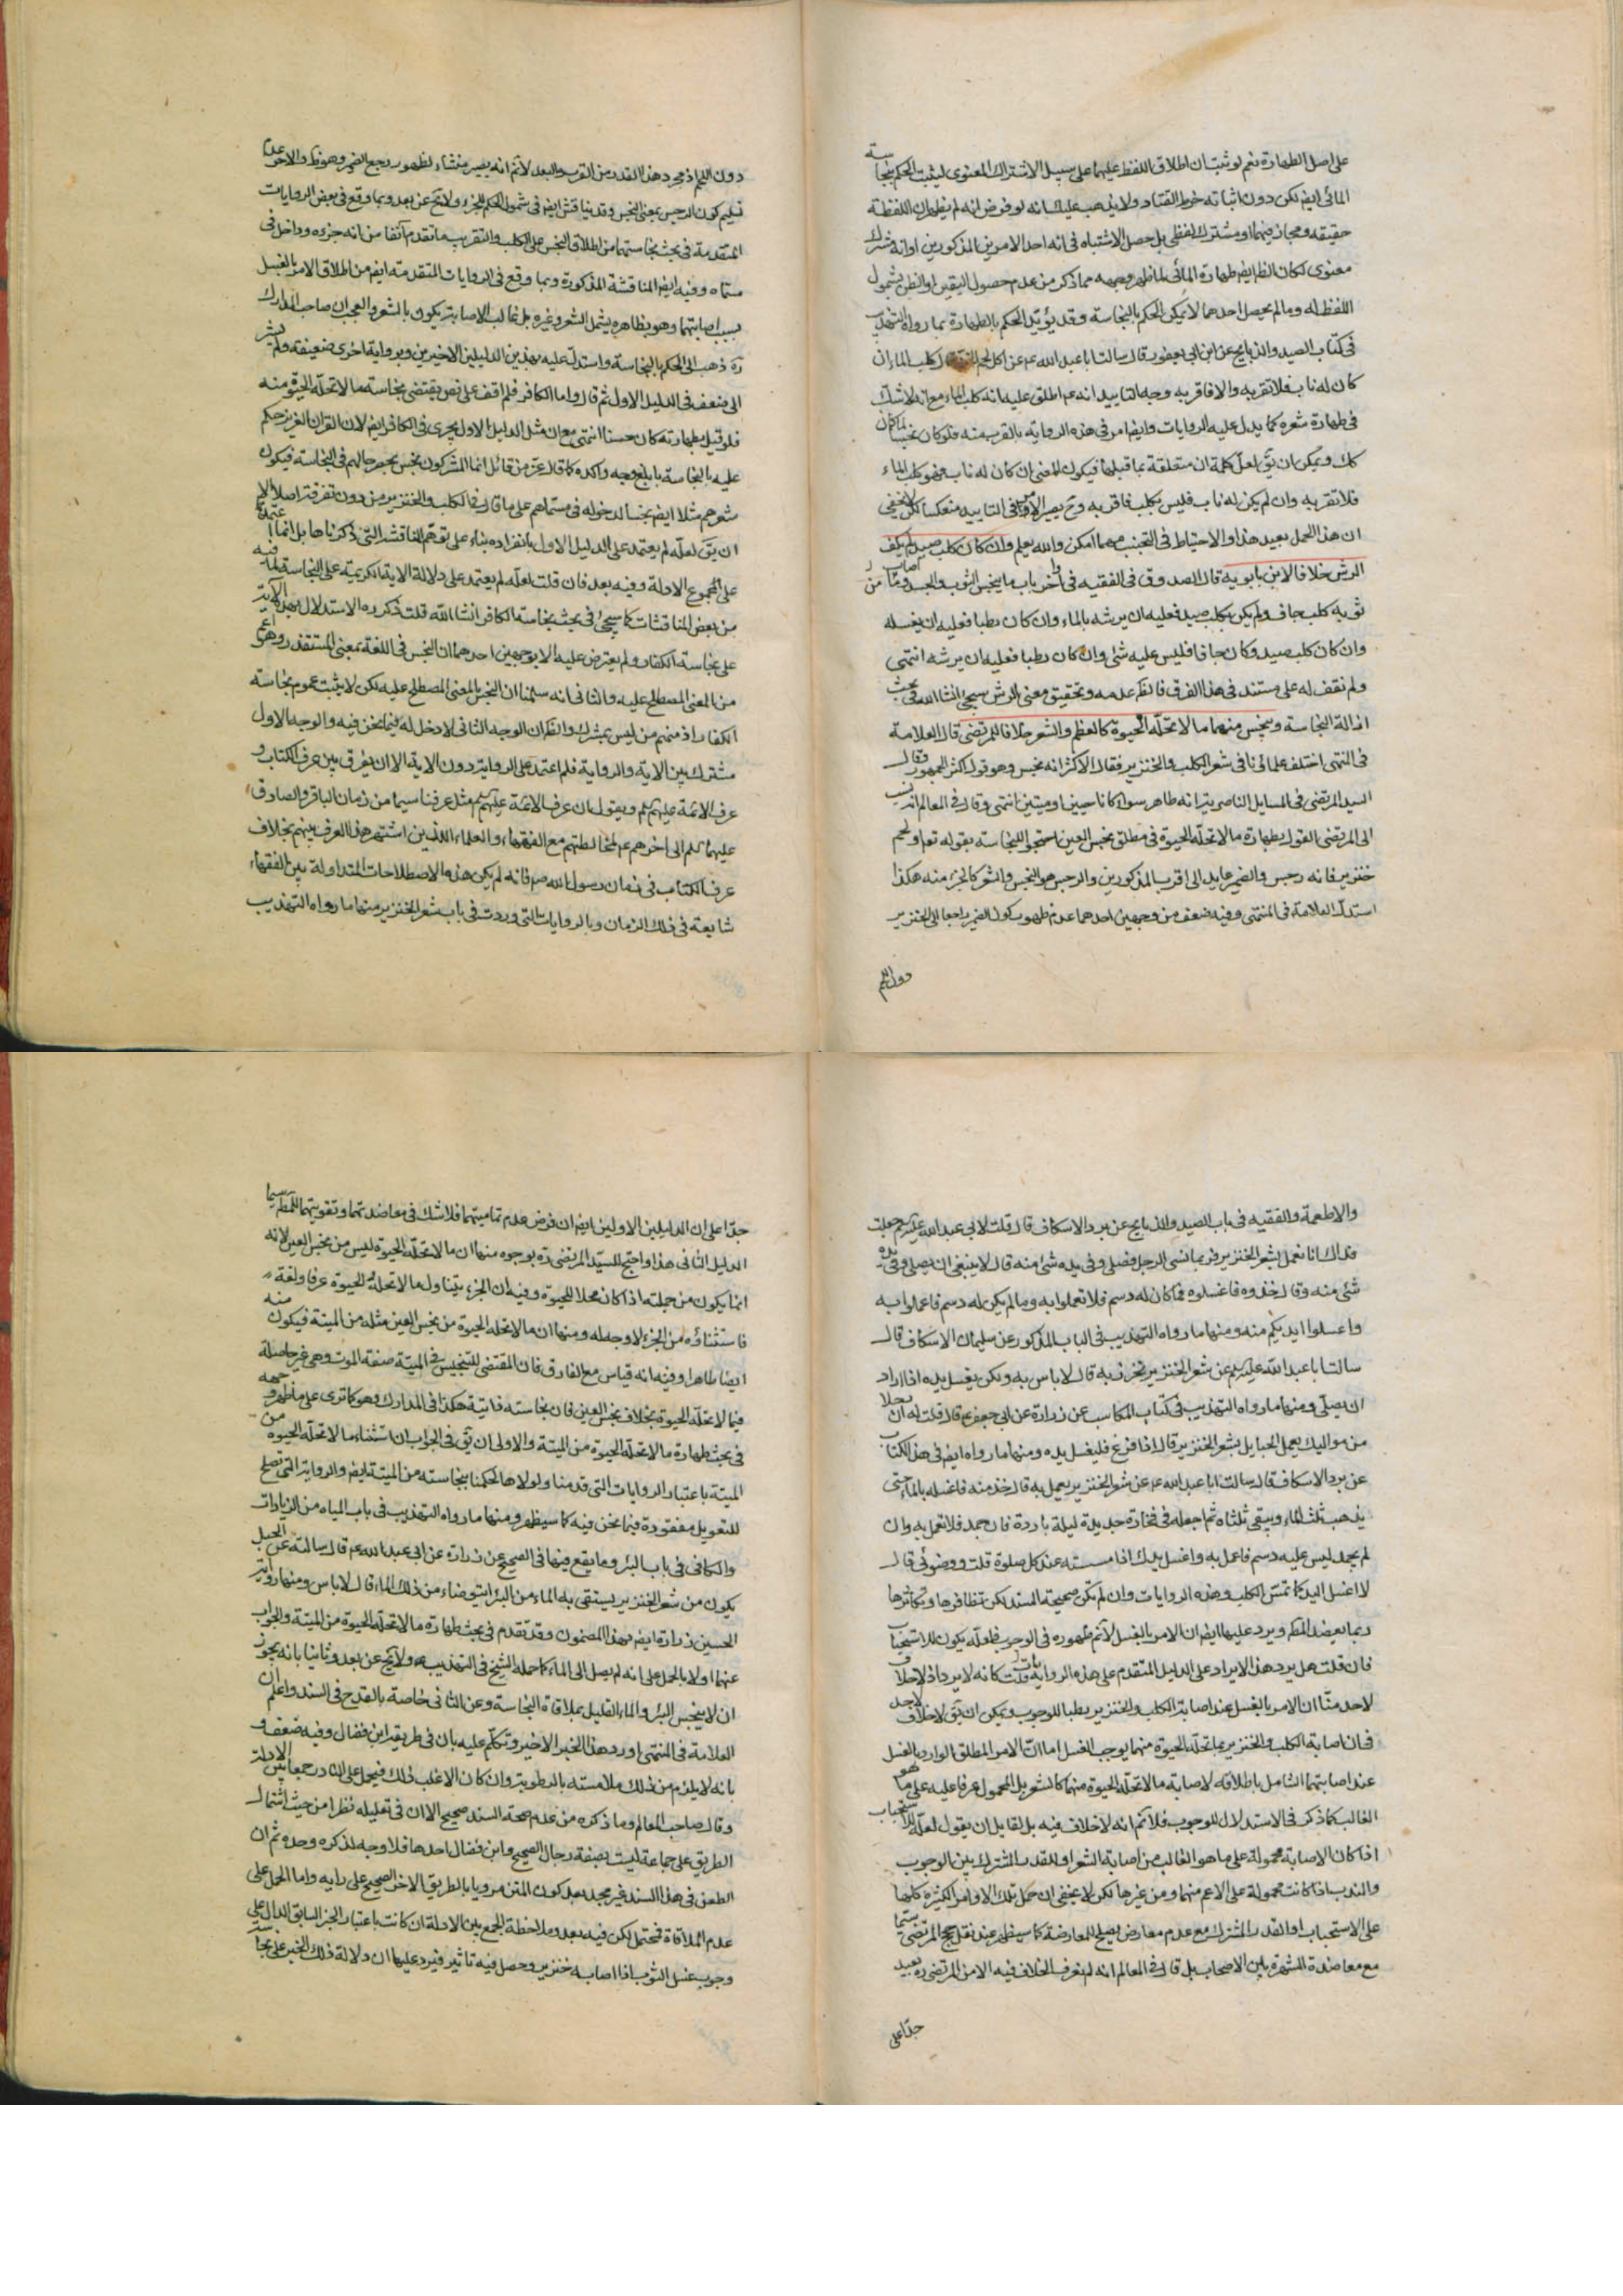 على اصل الطهارة نعم لو ثبت ان اطلاق اللفظ عليهما على سبيل الاشتراك المعنوى ليثبت الحكم بنجاسة
المائى ايضا لكن دون اثباته خرط القتاد ولا يذهب عليك انه لو فرض انه لم يظهر ان اللفظة
حقيقة ومجاز فيهما او مشترك لفظى بل حصل الاشتباه فى انه احد الامرين المذكورين او انه مشترك
معنوى لكان الظ ايضا طهارة المائى لما ظهر وجهه مما ذكر من عدم حصول اليقين او الظن بشمول
اللفظ له وما لم يحصل احدهما لا يمكن الحكم بالنجاسة وقد يؤيد الحكم بالطهارة بما رواه التهذيب
فى كتاب الصيد والذبايح عن ابن ابى يعفور قال سالت ابا عبد الله ع عن اكل لحم قال كلب الماء ان
كان له ناب فلا تقربه والا فاقربه وجه التاييد انه ع اطلق عليه انه كلب الماء مع انه لا شك
فى طهارة شعره كما يدل عليه الروايات وايضا امر فى هذه الرواية بالقرب منه فلو كان نجسا لما كان
كك ويمكن ان يق لعل كلمة ان متعلقة بما قبلها فيكون المعنى ان كان له ناب فهو كلب الماء
فلا تقربه وان لم يكن له ناب فليس بكلب فاقربه وح يصير الامر فى التاييد منعكسا لكن لا يخفى
ان هذا الحمل بعيد هذا والاحتياط فى التجنب مهما امكن والله يعلم وان كان كلب صيد لم يكف
الرش خلافا لابن بابويه قال الصدوق فى الفقيه فى اخر باب ما ينجس الثوب والجسد ومن اصاب
ثوبه كلب جاف ولم يكن بكلب صيد فعليه ان يرشه بالماء وان كان رطبا فعليه ان يغسله
وان كان كلب صيد وكان جافا فليس عليه شئ وان كان رطبا فعليه ان يرشه انتهى
ولم نقف له على مستند فى هذا الفرق فالظ عدمه وتحقيق معنى الرش سيجئ انشا الله فى بحث
ازالة النجاسة وينجس منهما ما لا تحله الحيوة كالعظم والشعر خلافا للمرتضى قال العلامة
فى المنتهى اختلف علمائنا فى شعر الكلب والخنزير فقال الاكثر انه نجس وهو قول اكثر الجمهور وقال
السيد المرتضى فى المسايل الناصرية انه طاهر سواء كانا حيين او ميتين انتهى وقال فى المعالم انه نسب
الى المرتضى القول بطهارة ما لا تحله الحيوة فى مطلق نجس العين احتجوا للنجاسة بقوله تعا ولحم
خنزير فانه رجس والضمير عايد الى اقرب المذكورين والرجس هو النجس والشعر كالجزء منه هكذا
استدل العلامة فى المنتهى وفيه ضعف من وجهين احدهما عدم ظهور كون الضمير راجعا الى الخنزير
دون اللحم
دون اللحم اذ مجرد هذا القدر من القرب والبعد لا نم انه يصير منشاء لظهور رجع الضمير وهو ظ والاخر عدم
تسليم كون الرجس بمعنى النجس وقد يناقش ايضا فى شمول الحكم للجزء ولا يخ عن بعد وبما وقع فى بعض الروايات
المتقدمة فى بحث نجاستهما من اطلاق النجس على الكلب والتقريب ما تقدم آنفا من انه جزءه وداخل فى
مسماه وفيه ايضا المناقشة المذكورة وبما وقع فى الروايات المتقدمة ايضا من اطلاق الامر بالغسل
بسبب اصابتهما وهو بظاهره يشمل الشعر وغيره بل غالب الاصابة يكون بالشعر والعجب ان صاحب المدارك
ره ذهب الى الحكم بالنجاسة واستدل عليه بهذين الدليلين الاخيرين وبرواية اخرى ضعيفة ولم يشر
الى ضعف فى الدليل الاول ثم قال واما الكافر فلم اقف على نص يقتضى نجاسة ما لا تحله الحيوة منه
فلو قيل بطهارته كان حسنا انتهى مع ان مثل الدليل الاول يجرى فى الكافر ايضا لان القران العزيز حكم
عليه بالنجاسة بابلغ وجه واكده كما قال عز من قائل انما المشركون نجس بحصر حالهم فى النجاسة فيكون
شعرهم مثلا ايضا نجسا لدخوله فى مسماهم على ما قال فى الكلب والخنزير من دون تفرقة اصلا الا
ان يق لعله لم يعتمد على الدليل الاول بانفراده بناء على توهم المناقشة التى ذكرناها بل انما اعتماده
على مجموع الادلة وفيه بعد فان قلت لعله لم يعتمد على دلالة الاية الكريمة على النجاسة لما فيه
من بعض المناقشات كما سيجئ فى بحث نجاسة الكافر انشا الله قلت ذكر ره الاستدلال بهذه الاية
على نجاسة الكفار ولم يعترض عليه الا بوجهين احدهما ان النجس فى اللغة بمعنى المستقذر وهو اعم
من المعنى المصطلح عليه والثانى انه سلمنا ان النجس بالمعنى المصطلح عليه لكن لا يثبت عموم نجاسة
الكفار اذ منهم من ليس بمشرك والظ ان الوجه الثانى لا دخل له فيما نحن فيه والوجه الاول
مشترك بين الاية والرواية فلم اعتمد على الرواية دون الاية الا ان يفرق بين عرف الكتاب و
عرف الائمة عليهم السلم ويقول بان عرف الائمة عليهم السلم مثل عرفنا سيما من زمان الباقر والصادق
عليهما السلم الى اخرهم ع لمخالطتهم مع الفقهاء والعلماء الذين اشتهر هذا العرف بينهم بخلاف
عرف الكتاب فى زمان رسول الله ص فانه لم يكن هذه الاصطلاحات المتداولة بين الفقهاء
شايعة فى ذلك الزمان وبالروايات التى وردت فى باب شعر الخنزير منها ما رواه التهذيب
والاطعمة والفقيه فى باب الصيد والذبايح عن برد الاسكاف قال قلت لابى عبد الله عليه السلم جعلت
فداك انا نعمل بشعر الخنزير فربما نسى الرجل فصلى وفى يده شئ منه قال لا ينبغى ان يصلى وفى يده
شئ منه وقال خذوه فاغسلوه فما كان له دسم فلا تعملوا به وما لم يكن له دسم فاعملوا به
واغسلوا ايديكم منه ومنها ما رواه التهذيب فى الباب المذكور عن سليمان الاسكاف قال
سالت ابا عبد الله عليه السلم عن شعر الخنزير نخرز به قال لا باس به ولكن يغسل يده اذا اراد
ان يصلى ومنها ما رواه التهذيب فى كتاب المكاسب عن زرارة عن ابى جعفر ع قال قلت له ان رجلا
من مواليك يعمل الحبايل بشعر الخنزير قال اذا فرغ فليغسل يده ومنها ما رواه ايضا فى هذا الكتاب
عن برد الاسكاف قال سالت ابا عبد الله ع عن شعر الخنزير يعمل به قال خذ منه فاغسله بالماء حتى
يذهب ثلث الماء ويبقى ثلثاه ثم اجعله فى فخارة جديدة ليلة باردة فان جمد فلا تعمل به وان
لم يجمد ليس عليه دسم فاعمل به واغسل يدك اذا مسسته عند كل صلوة قلت ووضوئى قال
لا اغسل اليد كما تمس الكلب وهذه الروايات وان لم تكن صحيحة السند لكن تظافرها وتكاثرها
ربما يعضد الحكم ويرد عليها ايضا ان الامر بالغسل لا نم ظهوره فى الوجوب فلعله يكون للاستحباب
فان قلت هل يرد هذا الايراد على الدليل المتقدم على هذه الروايات قلت كانه لا يرد اذ لا خلاف
لاحد منا ان الامر بالغسل عند اصابة الكلب والخنزير رطبا للوجوب ويمكن ان يق لا خلاف لاحد
فى ان اصابة الكلب والخنزير بما تحله الحيوة منهما يوجب الغسل اما ان الامر المطلق الوارد بالغسل
عند اصابتهما الشامل باطلاقه لاصابة ما لا تحله الحيوة منهما كالشعر بل المحمول عرفا عليه على ما هو
الغالب كما ذكر فى الاستدلال للوجوب فلا نم انه لا خلاف فيه بل لقايل ان يقول لعله للاستحباب
اذا كان الاصابة محمولة على ما هو الغالب من اصابة الشعر او للقدر المشترك بين الوجوب
والندب اذا كانت محمولة على الاعم منهما ومن غيرها لكن لا يخفى ان حمل تلك الاوامر الكثيرة كلها
على الاستحباب او القدر المشترك مع عدم معارض يصلح للمعارضة كما سيظهر عند نقل حجج المرتضى سيما
مع معاضدة الشهرة بين الاصحاب بل قال فى المعالم انه لم نعرف الخلاف فيه الا من المرتضى ره بعيد
جدا على
جدا على ان الدليلين الاولين ايضا ان فرض عدم تماميتهما فلا شك فى معاضدتهما وتقويتهما للمط سيما
الدليل الثانى هذا واحتج للسيد المرتضى ره بوجوه منها ان ما لا تحله الحيوة ليس من نجس العين لانه
انما يكون من جملته اذا كان محلا للحيوة وفيه ان الجزء يتناول ما لا تحله الحيوة عرفا ولغة
فاستثناؤه من الجزء لا وجه له ومنها ان ما لا تحله الحيوة من نجس العين مثله من الميتة فيكون منه
ايضا طاهرا وفيه انه قياس مع الفارق فان المقتضى للتنجيس فى الميتة صفة الموت وهى غير حاصلة
فيما لا تحله الحيوة بخلاف نجس العين فان نجاسته ذاتية هكذا فى المدارك وهو كما ترى على ما ظهر وجهه
فى بحث طهارة ما لا تحله الحيوة من الميتة والاولى ان يق فى الجواب ان استثناء ما لا تحله الحيوة من
الميتة باعتبار الروايات التى قدمنا ولولاها لحكمنا بنجاسته من الميتة ايضا والرواية التى تصلح
للتعويل مفقودة فيما نحن فيه كما سيظهر ومنها ما رواه التهذيب فى باب المياه من الزيادات
والكافى فى باب البئر وما يقع فيها فى الصحيح عن زرارة عن ابى عبد الله ع قال سالته عن الحبل
يكون من شعر الخنزير يستقى به الماء من البئر ايتوضاء من ذلك الماء قال لا باس ومنها رواية
الحسين زرارة ايضا بهذا المضمون وقد تقدم فى بحث طهارة ما لا تحله الحيوة من الميتة والجواب
عنهما اولا بالحمل على انه لم يصل الى الماء كما حمله الشيخ فى التهذيب ولا يخ عن بعد وثانيا بانه يجوز
ان لا ينجس البئر والماء القليل بملاقاة النجاسة وعن الثانى خاصة بالقدح فى السند واعلم ان
العلامة فى المنتهى اورد هذا الخبر الاخير وتكلم عليه بان فى طريقه ابن فضال وفيه ضعف و
بانه لا يلزم من ذلك ملامسته بالرطوبة وان كان الاغلب ذلك فيحمل على النادر جمعا بين الادلة
وقال صاحب المعالم وما ذكره من عدم صحة السند صحيح الا ان فى تعليله نظرا من حيث اشتمال
الطريق على جماعة ليست بصفة رجال الصحيح وابن فضال احدها فلا وجه لذكره وحده ثم ان
الطعن فى هذا السند غير مجد بعد كون المتن مرويا بالطريق الاخر الصحيح على رايه واما الحمل على
عدم الملاقاة فمحتمل لكن فيه بعد وملاحظة الجمع بين الادلة ان كانت باعتبار الخبر السابق الدال على
وجوب غسل الثوب اذا اصابه خنزير وحصل فيه تاثير فيرد عليها ان دلالة ذلك الخبر على نجاسة